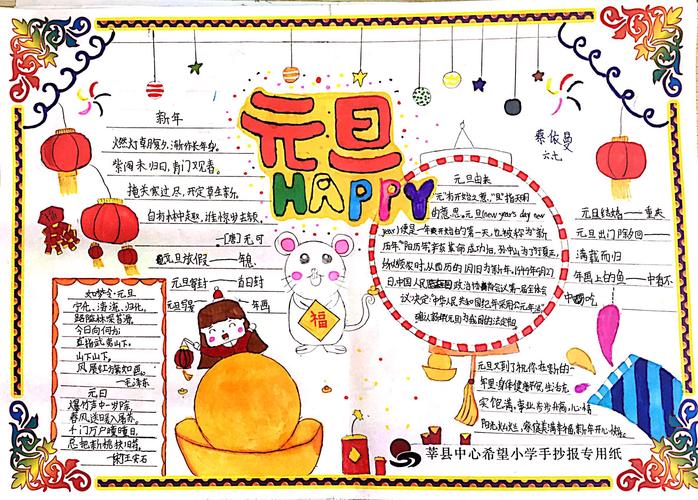 元旦
HAPPY
蔡依曼
六七
新年
燃灯
紫阁未归日,青门又见春。
掩关寒过尽,开定草生新。
自有林中趣,谁惊岁去频。
——[唐]无可
元旦放假——年息
元旦寄封——首日封
元旦写
——年画
如梦令·元旦
宁化、清流、归化,
路隘林深苔滑。
今日向何方,
直指武夷山下。
山下山下,
风展红旗如画。
——毛泽东
元日
爆竹声中一岁除,
春风送暖入屠苏。
千门万户曈曈日,
总把新桃换旧符。
——[宋]王安石
福
元旦由来
"元"有开始之意,"旦"指天明
的意思。元旦(new year's day new
year)便是一年开始的第一天,也被称为"新
历年""阳历年"。辛亥革命成功后,孙中山为了"行夏正,
所以顺农时,从西历
1949年9月27
日,中国人民政治协商会议第一届全体会
议,决定"中华人民共和国纪年采用公元年法",
元旦结婚——重庆
元旦出门除夕回——
满载而归
年画上的鱼——中看不
中吃
元旦又到了,祝你在新的一
年里:身体健康
,生活充
实饱满,事业步步高,心情
阳光灿烂,家庭美满幸福,新年开心快乐。
莘县中心希望小学手抄报专用纸